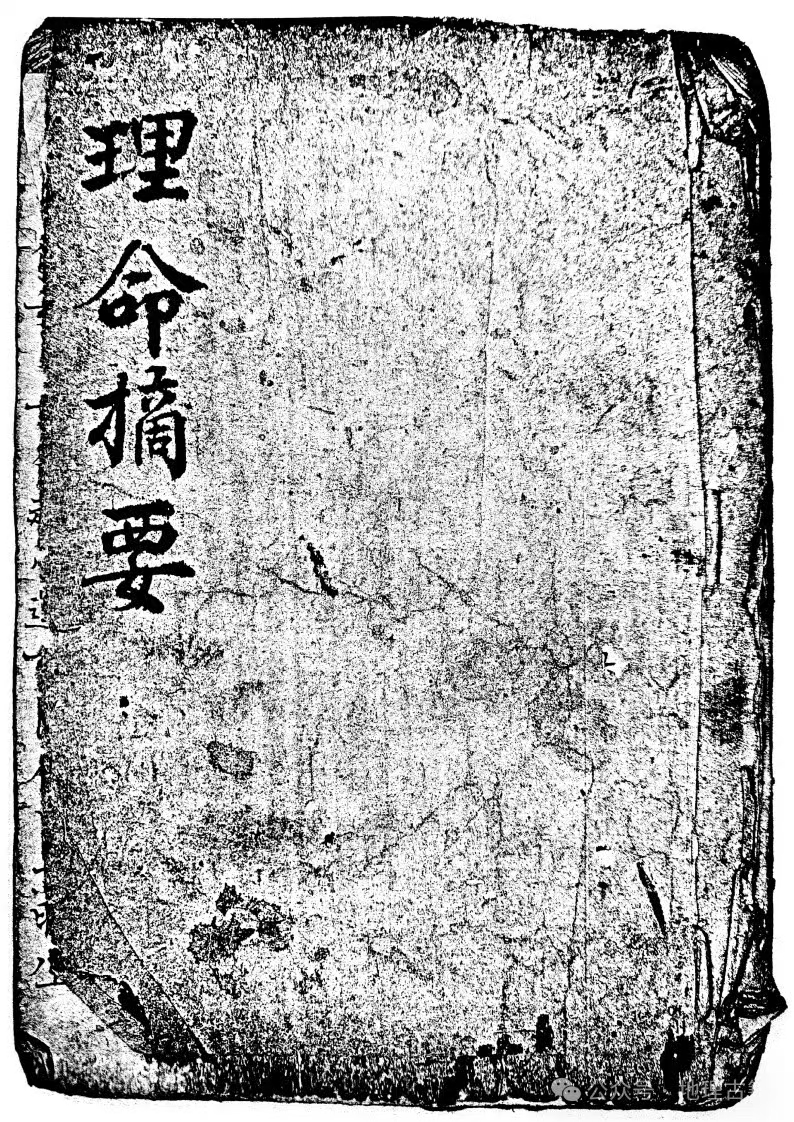 理命摘要
公众号·地理古